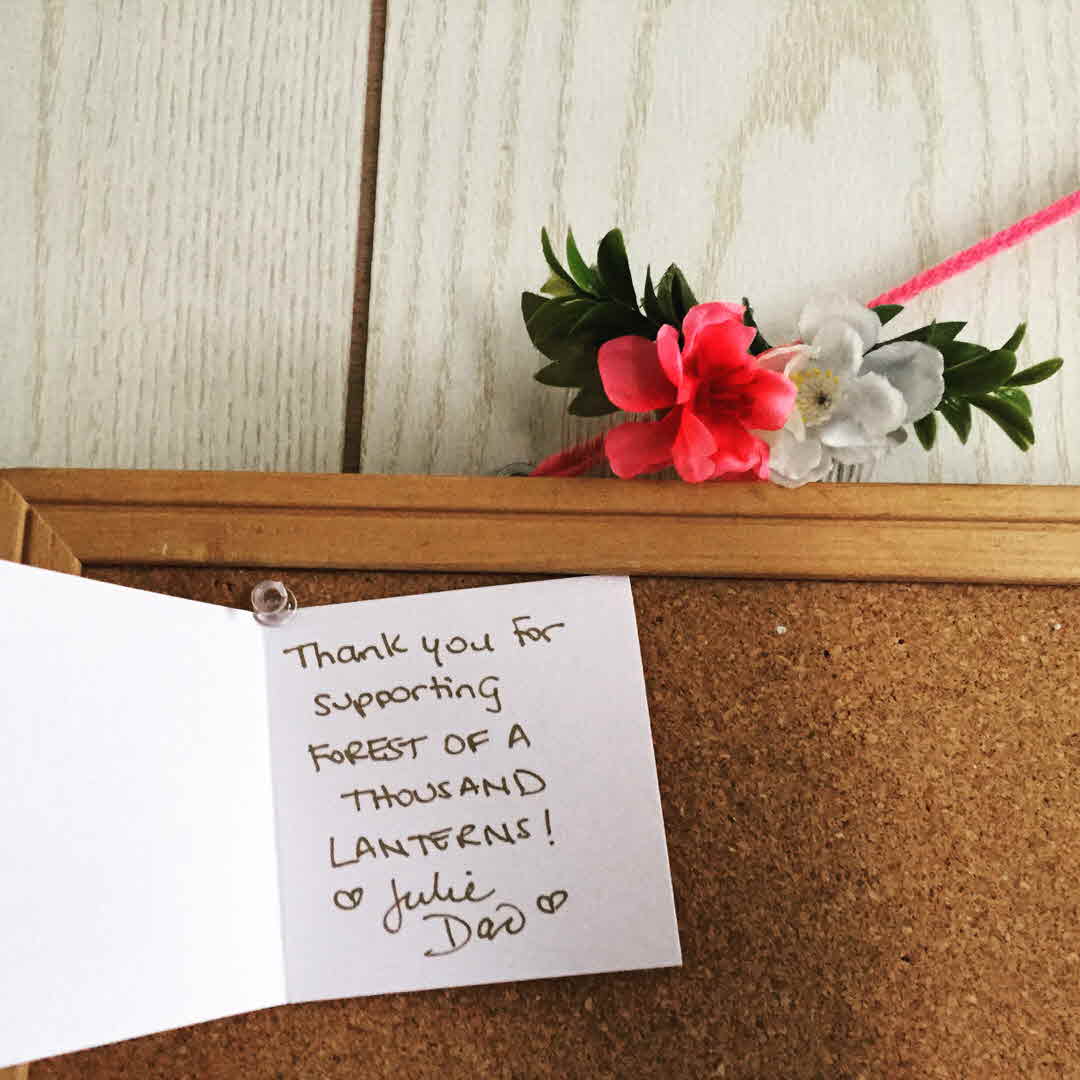 Thank you for
supporting
FOREST OF A
THOUSAND
LANTERNS!
♡ Julie
Dao ♡